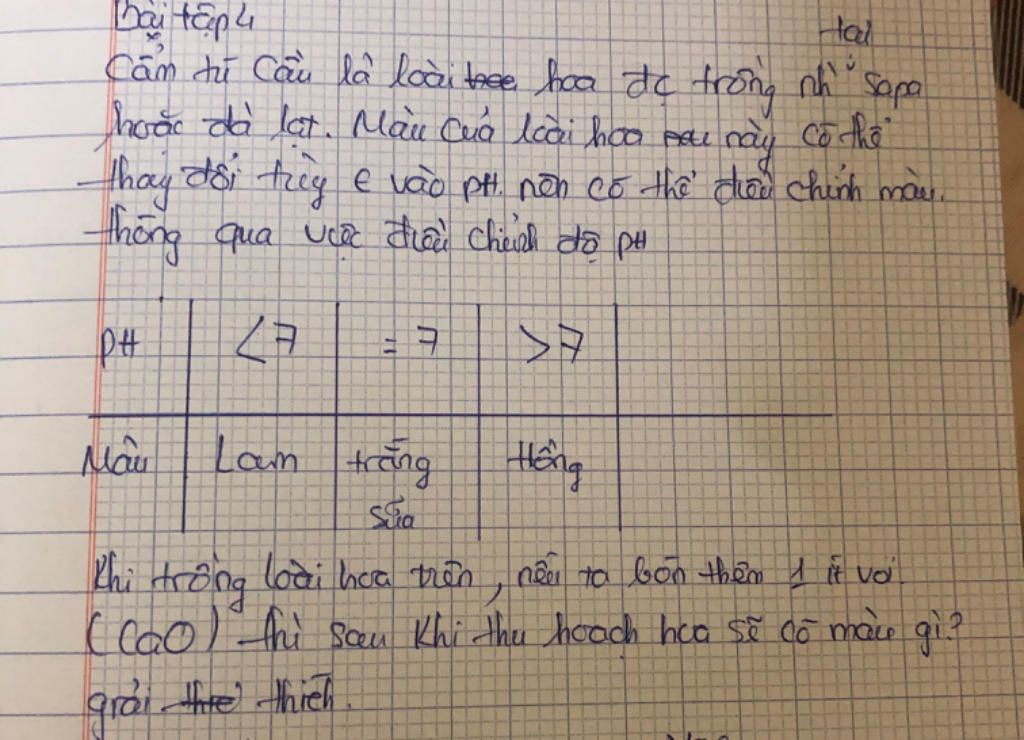 Bài tập 4
Cẩm tú cầu là loài hoa đc trồng nh' tại Sapa
hoặc đà lạt. Màu của loài hoa này có thể
thay đổi tùy € vào pH. nên có thể điều chỉnh màu.
thông qua việc điều chỉnh độ pH
pH <7 =7 >7
Màu Lam trắng sữa Hồng
Khi trồng loài hoa trên, nếu ta bón thêm 1 ít vôi
(CaO) thì sau khi thu hoạch hoa sẽ có màu gì?
giải thích.